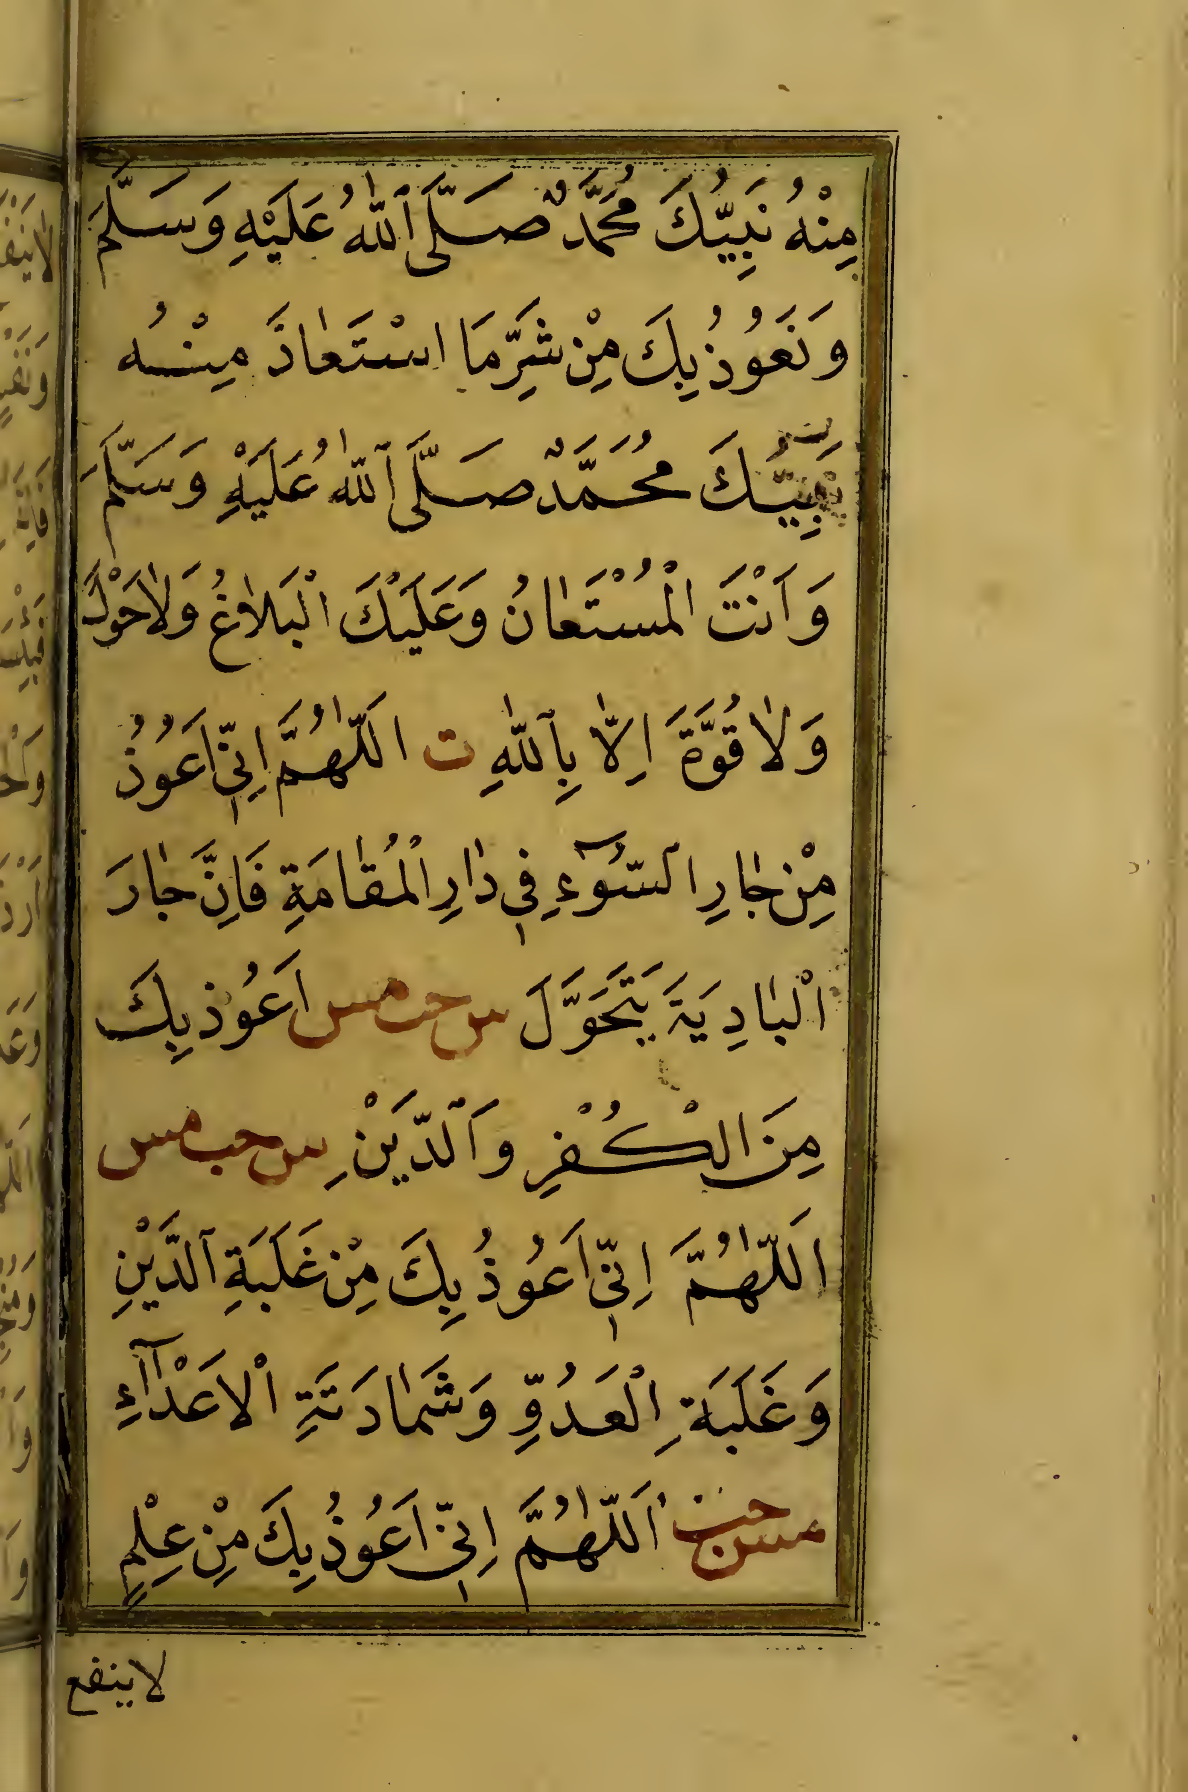 مِنْهُ نَبِيُّكَ مُحَمَّدٌ صَلَّى ٱللّٰهُ عَلَيْهِ وَسَلَّمَ
وَنَعُوْذُ بِكَ مِنْ شَرِّ مَا اسْتَعَاذَ مِنْهُ
نَبِيُّكَ مُحَمَّدٌ صَلَّى ٱللّٰهُ عَلَيْهِ وَسَلَّمَ
وَاَنْتَ الْمُسْتَعَانُ وَعَلَيْكَ الْبَلَاغُ وَلَاحَوْلَ
وَلَا قُوَّةَ اِلَّا بِٱللّٰهِ ت اَللّٰهُمَّ اِنِّىْ اَعُوْذُ
مِنْ جَارِ السُّوْٓءِ فِى دَارِ الْمُقَامَةِ فَاِنَّ جَارَ
الْبَادِيَةَ يَتَحَوَّلَ س حب مس اَعُوْذ بِكَ
مِنَ الْكُفْرِ وَٱلدَّيْنِ س حب مس
اَللّٰهُمَّ اِنِّىْ اَعُوْذُ بِكَ مِنْ غَلَبَةِ ٱلدَّيْنِ
وَغَلَبَةِ الْعَدُوِّ وَشَمَادَتَةِ الْاَعْدَآءِ
مس حب اَللّٰهُمَّ اِنِّىْ اَعُوْذُ بِكَ مِنْ عِلْمٍ
لاينفع